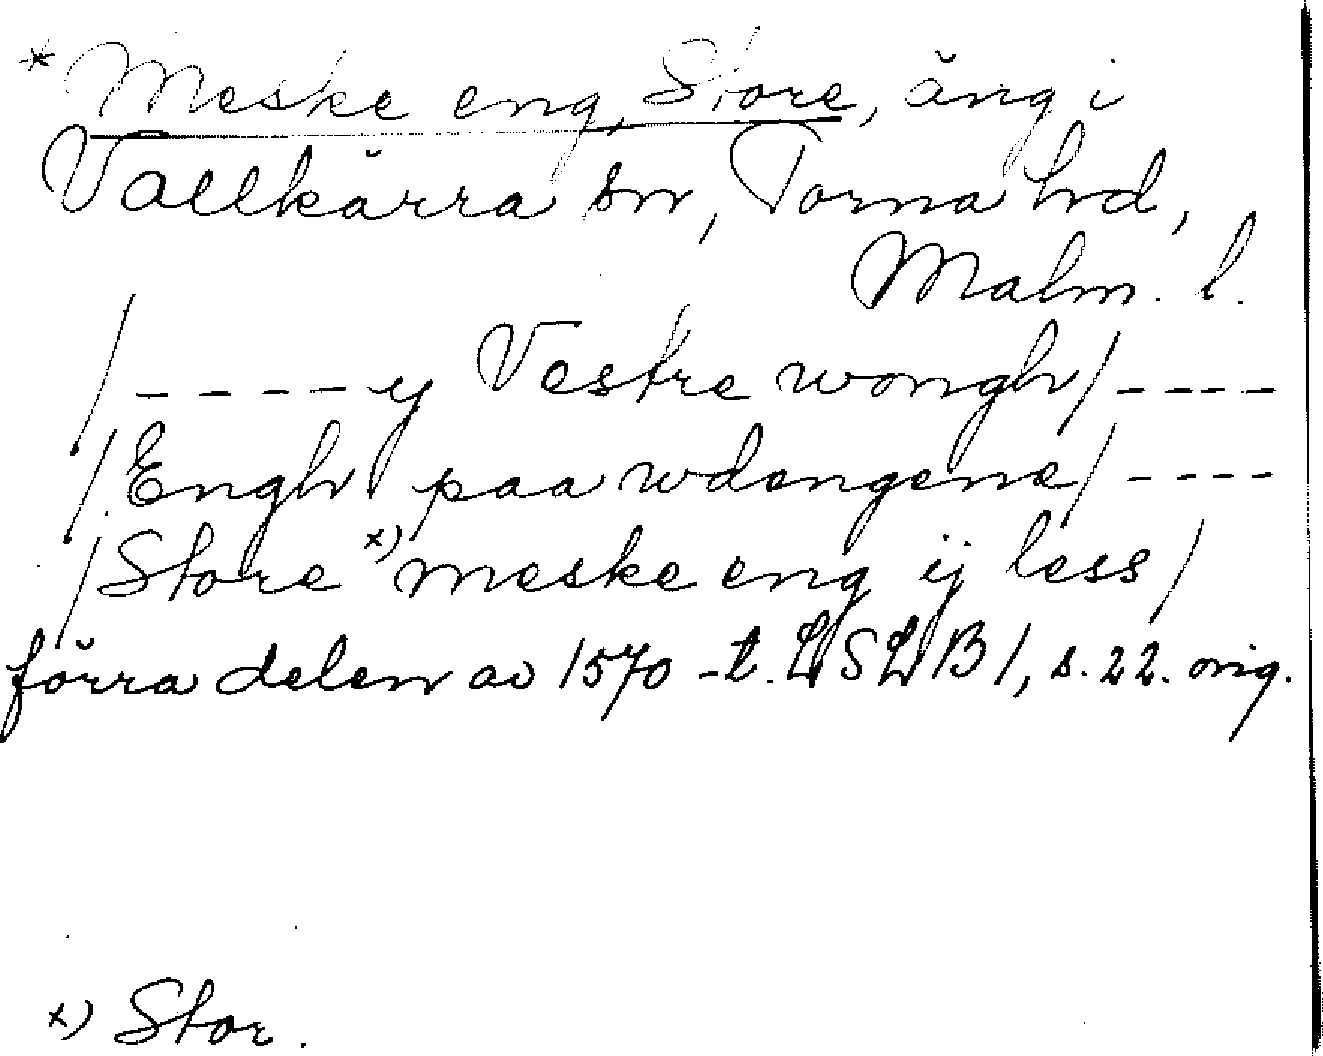 * Meske eng, Store, äng i
Vallkärra sn, Torna hd,
Malm. l.
/ - - - - y Vestre wongh / - - - -
/ Engh paa wdengene / - - - -
/ Store x) meske eng ij less /
förra delen av 1570-t. LSLB 1, s. 22. orig.
x) Stor.